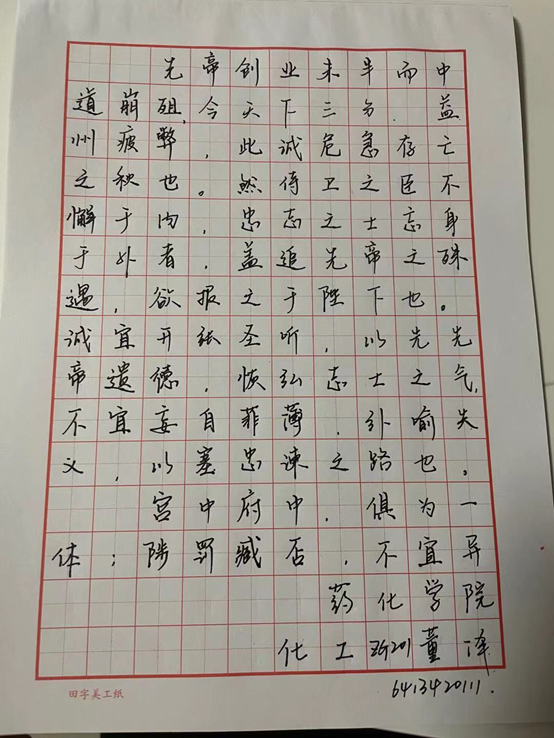 先帝创业未半而中
道崩殂,今天下三分.益
州疲弊,此诚危急存亡
之秋也。然侍卫之臣不
懈于内,忠志之士忘身
于外者,盖追先帝之殊
遇,欲报之于陛下也。
诚宜开张圣听,以先先
帝遗德,恢弘志士之气,
不宜妄自菲薄,引喻失
义,以塞忠谏之路也。
宫中府中,俱为一
体;陟罚臧否,不宜异
药化学院
化工ZG201董泽
6413420111.
田字美工纸